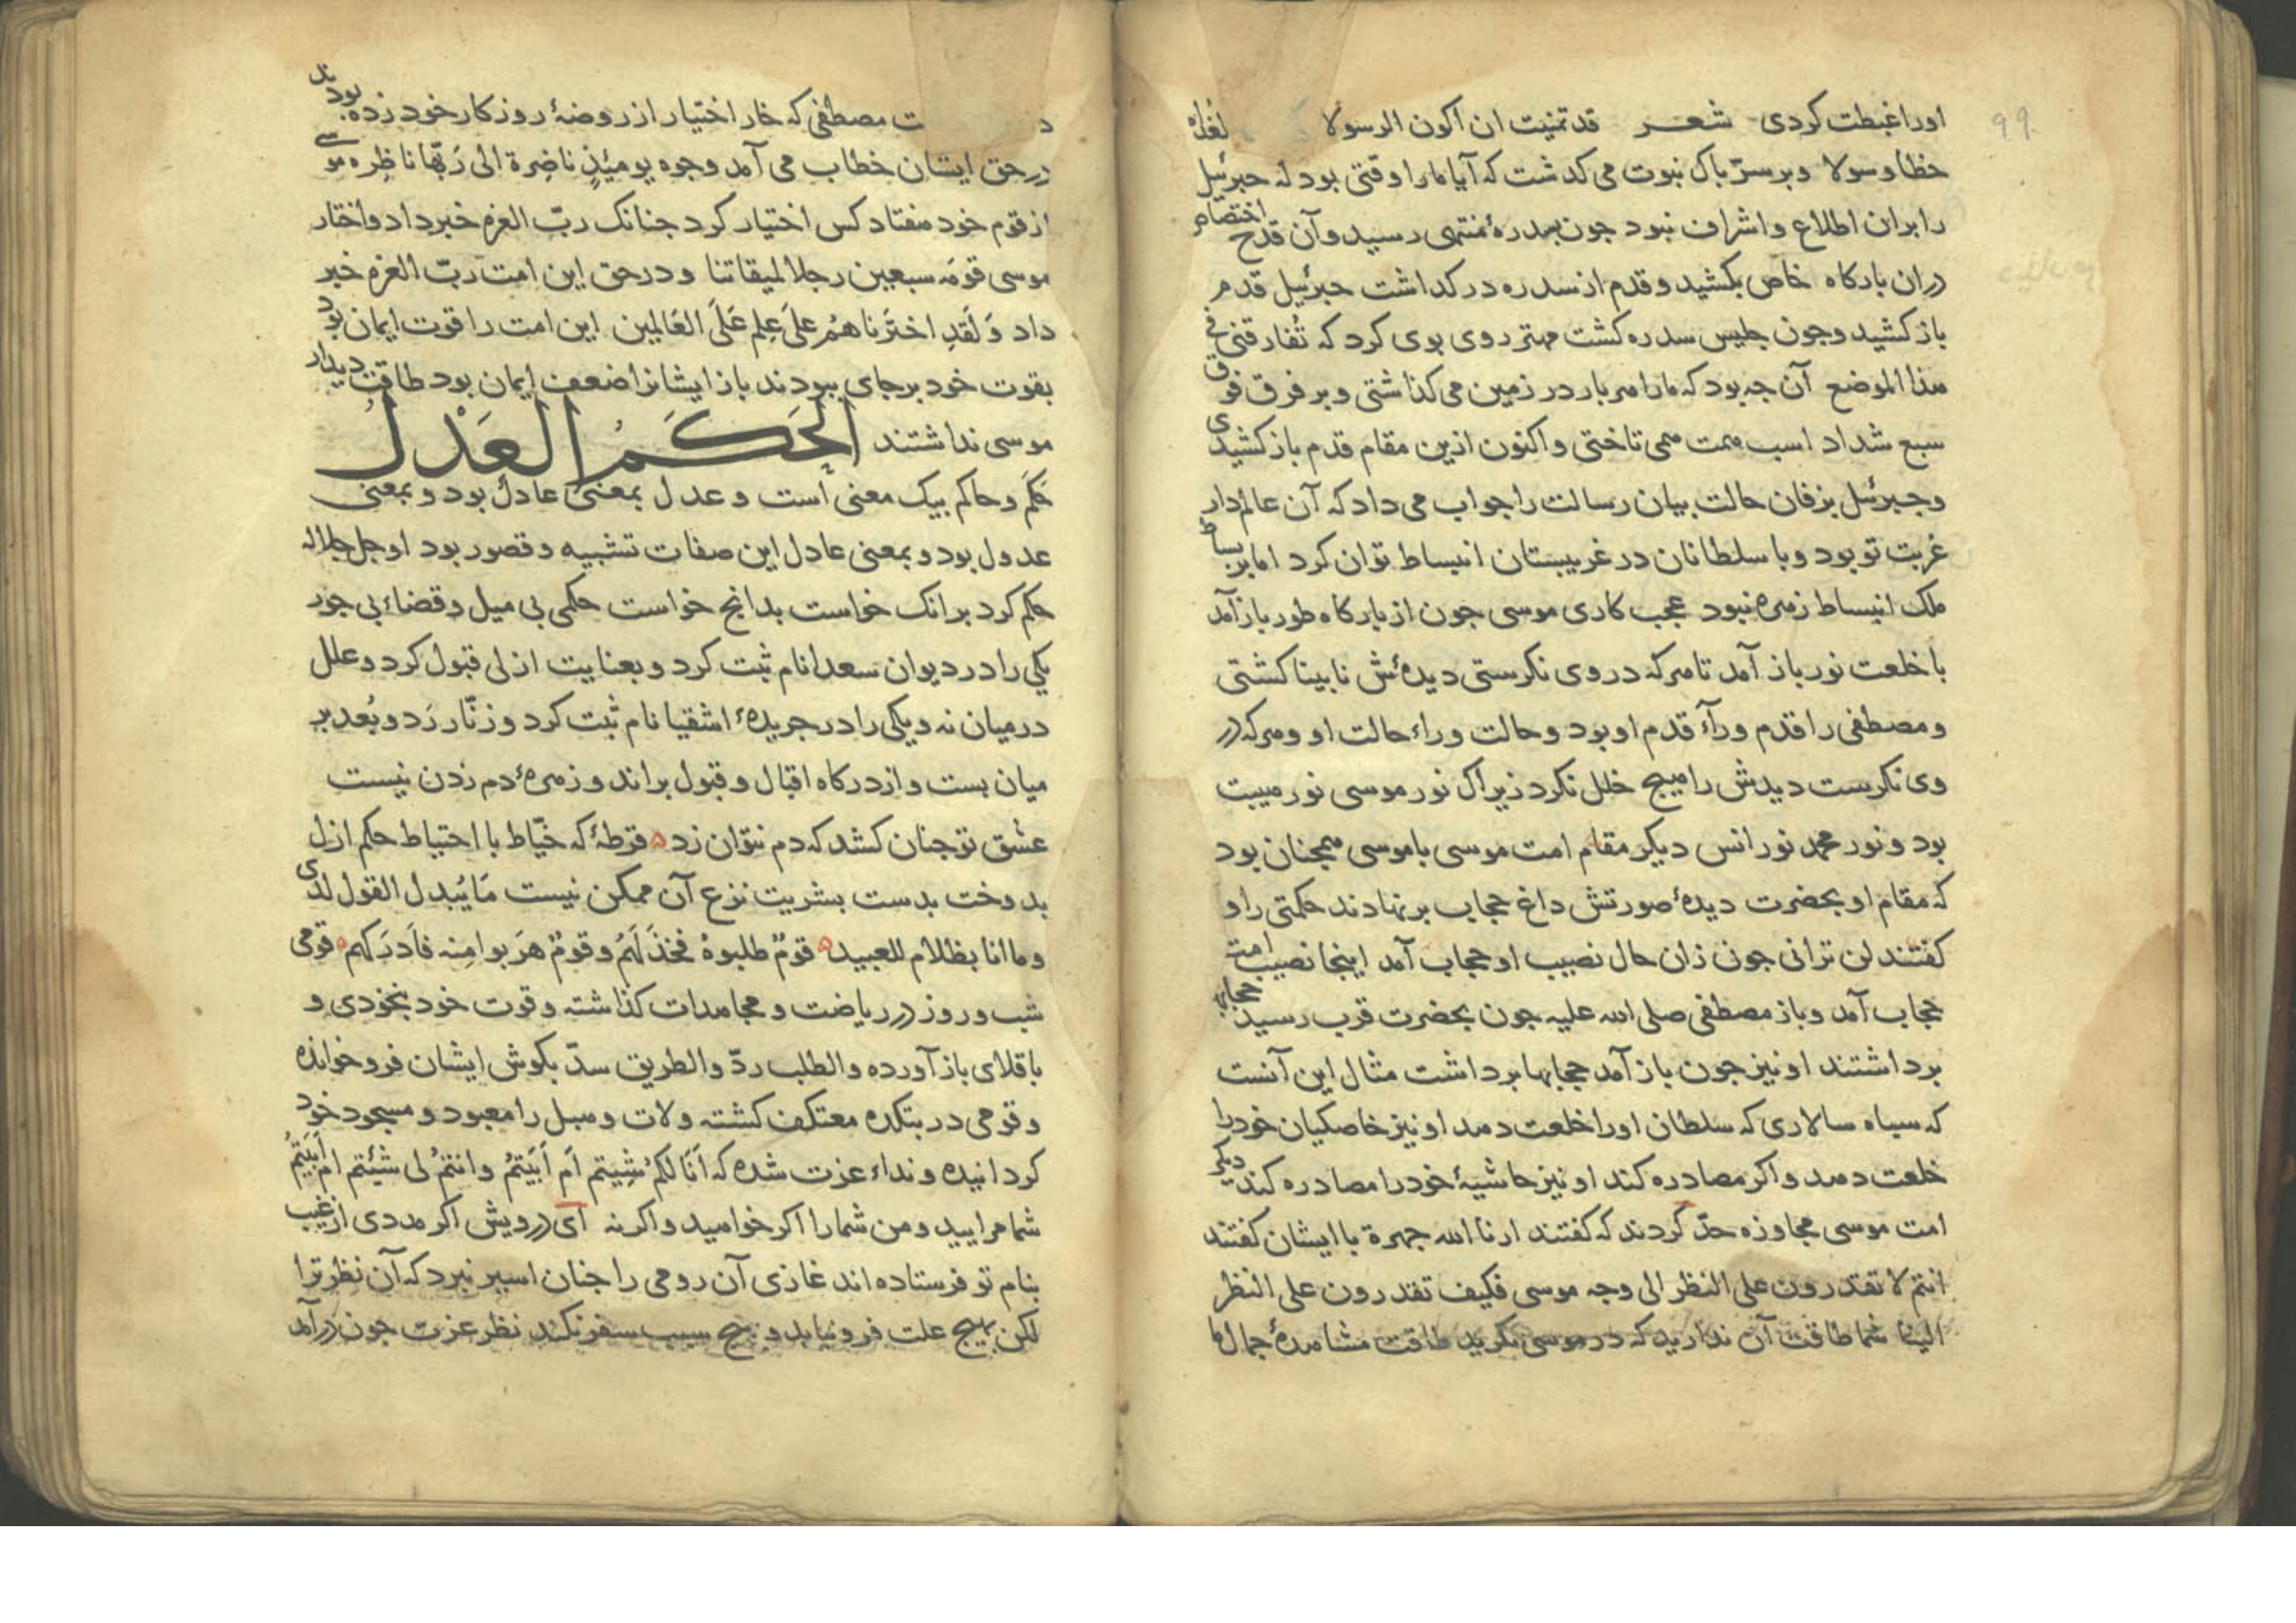 ۹۹
اورا غبطت کردی شعر قد تمنیت ان اکون الرسولا
خطا وسولا وبر سر باک نبوت می کدشت که آیا مارا وقتی بود که جبرئیل
را بران اطلاع واشراف نبود جون بسدرهٔ منتهی رسید وآن قدح اختصاص
دران بارکاه خاص بکشید وقدم از سدره در کذاشت جبرئیل قدم
باز کشید وجون جلیس سدره کشت مهتر روی بوی کرد که تُفارقنی فی
هذا الموضع آن جه بود که مارا هر بار در زمین می کذاشتی و بر فرق فوق
سبع شداد اسب همت همی تاختی و اکنون ازین مقام قدم باز کشیدی
و جبرئیل بزفان حالت بیان رسالت را جواب می داد که آن عالم دار
غربت تو بود وبا سلطانان در غریبستان انبساط توان کرد اما بر بساط
ملک انبساط زهره نبود عجب کاری موسی جون از بارکاه طور باز آمد
با خلعت نور باز آمد تا هرکه در وی نکرستی دیدهٔش نابینا کشتی
و مصطفی را قدم ورآءِ قدم او بود و حالت وراء حالت او و هرکه در
وی نکرست دیدش را هیج خلل نکرد زیراک نور موسی نور هیبت
بود و نور محمد نور انس دیکر مقام امت موسی با موسی همجنان بود
که مقام او بحضرت دیدهٔ صورتش داغ حجاب بر نهادند حکمتی را و
کفتند لن ترانی جون زان حال نصیب او حجاب آمد اینجا نصیب امت
حجاب آمد و باز مصطفی صلی الله علیه جون بحضرت قرب رسید حجابها
برداشتند او نیز جون باز آمد حجابها برداشت مثال این آنست
که سباه سالاری که سلطان اورا خلعت دهد او نیز خاصکیان خود را
خلعت دهد و اکر مصادره کند او نیز حاشیهٔ خود را مصادره کند دیکر
امت موسی مجاوزه حدّ کردند که کفتند ارنا الله جهرة با ایشان کفتند
انتم لا تقدرون علی النظر الی وجه موسی فکیف تقدرون علی النظر
الینا شما طاقت آن ندارید که در موسی نکرید طاقت مشاهدهٔ جمال ما
مصطفی که خار اختیار از روضهٔ روزکار خود زده بودند
در حق ایشان خطاب می آمد وجوه یومئذٍ ناضِرة الی رَبّها ناظِره موسی
از قوم خود هفتاد کس اختیار کرد جنانک ربّ العزه خبر داد واختار
موسی قومَه سبعین رجلا لمیقاتنا و در حق این امت ربّ العزه خبر
داد وَلَقدِ اخترَناهُم علیَ عِلم عَلَی العَالمین این امت را قوت ایمان بود
بقوت خود بر جای ببودند باز ایشانرا ضعف ایمان بود طاقت دیدار
موسی نداشتند الحَکَمُ العَدْلُ
حَکَم و حاکم بیک معنی است و عدل بمعنی عادل بود و بمعنی
عدول بود و بمعنی عادل این صفات تشبیه و قصور بود او جل جلاله
حکم کرد بر انک خواست بدانج خواست حکمی بی میل و قضاء بی جور
یکی را در دیوان سعدا نام ثبت کرد و بعنایت ازلی قبول کرد و علل
در میان نه و یکی را در جریدهٔ اشقیا نام ثبت کرد و زنّار رَد و بُعد بر
میان بست و از درکاه اقبال و قبول براند و زهرهٔ دم زدن نیست
عشق تو جنان کشد که دم نتوان زد ه قرطهٔ که خیّاط با احتیاط حکم ازل
بدوخت بدست بشریت نزع آن ممکن نیست مَا یُبدل القول لدی
وما انا بظلام للعبید ه قومٌ طلبوهُ فخذَلَهُم وقومٌ هرَبوا مِنه فاَدرَکهم ه قومی
شب و روز در ریاضت و مجاهدات کذاشته و قوت خود بخودی و
باقلای باز آورده والطلب ردّ والطریق سدّ بکوش ایشان فرو خوانده
و قومی در بتکده معتکف کشته و لات و هبل را معبود و مسجود خود
کردانیده و نداء عزت شده که اَنَا لکُم شِیتم اَم اَبَیتُم وانتُم لی شئتم ام اَبَیتُم
شما مرایید و من شما را اکر خواهید و اکر نه ای درویش اکر مددی از غیب
بنام تو فرستاده اند غازی آن رومی را جنان اسیر نبرد که آن نظر ترا
لکن بهیج علت فرو نیاید و بهیج سبب سفر نکند نظر عزت جون درآمد